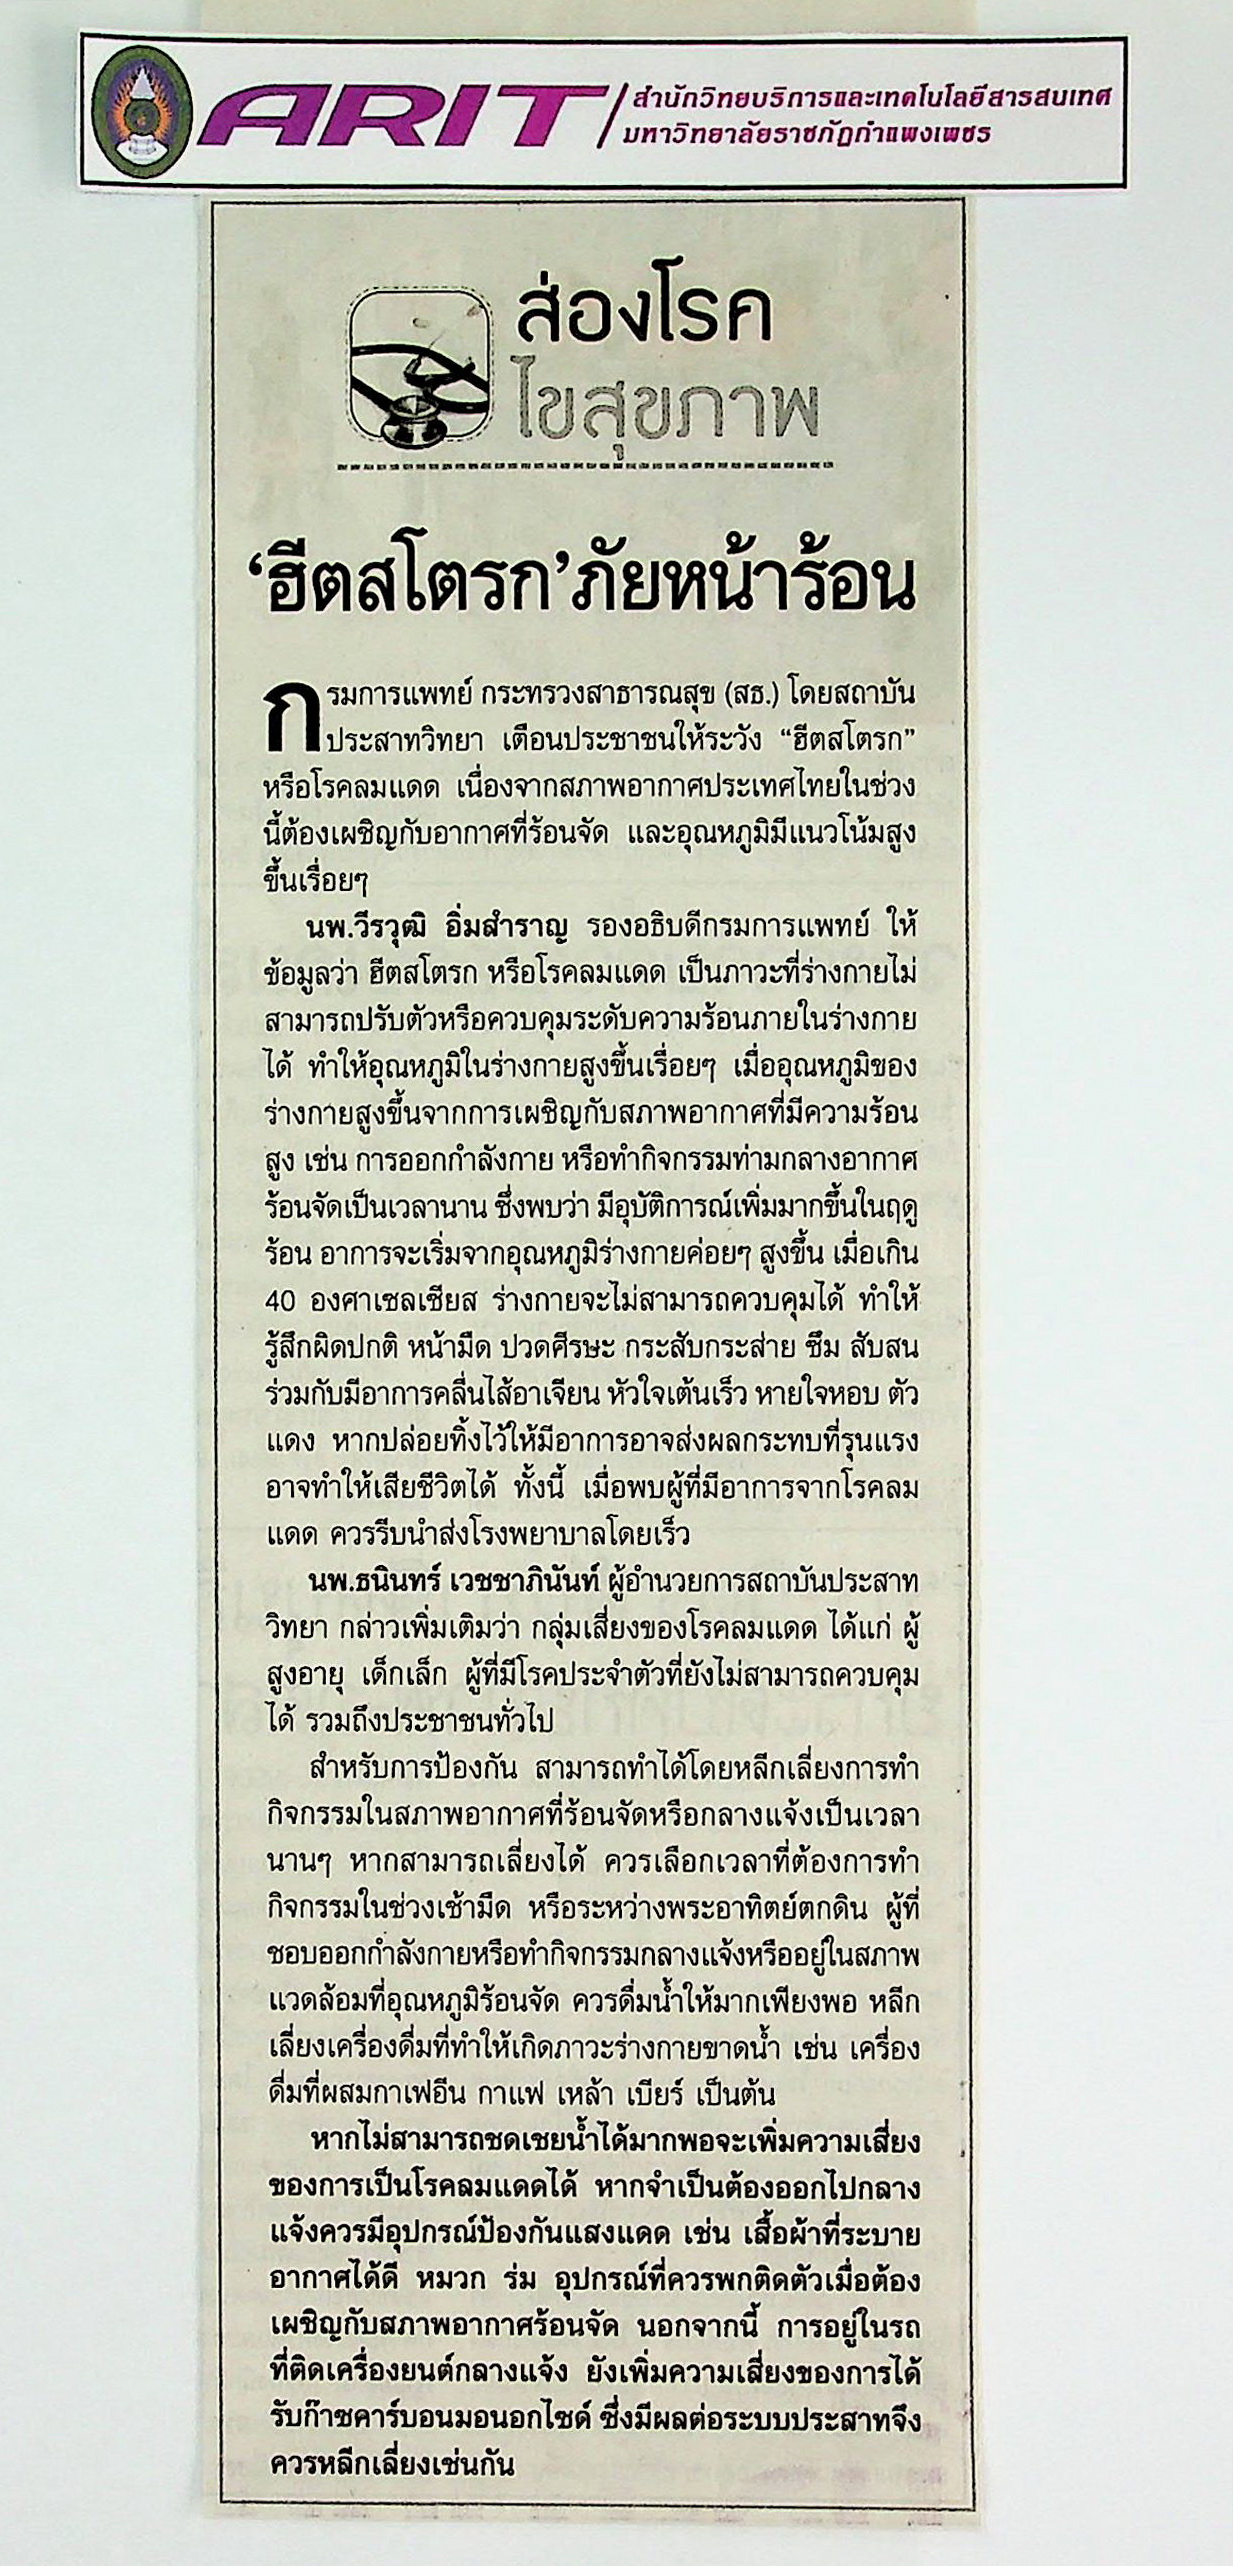 ARIT
สำนักวิทยบริการและเทคโนโลยีสารสนเทศ
มหาวิทยาลัยราชภัฏกำแพงเพชร
ส่องโรค
ไขสุขภาพ
‘ฮีตสโตรก’ภัยหน้าร้อน
กรมการแพทย์ กระทรวงสาธารณสุข (สธ.) โดยสถาบัน
ประสาทวิทยา เตือนประชาชนให้ระวัง “ฮีตสโตรก”
หรือโรคลมแดด เนื่องจากสภาพอากาศประเทศไทยในช่วง
นี้ต้องเผชิญกับอากาศที่ร้อนจัด และอุณหภูมิมีแนวโน้มสูง
ขึ้นเรื่อยๆ
นพ.วีรวุฒิ อิ่มสำราญ รองอธิบดีกรมการแพทย์ ให้
ข้อมูลว่า ฮีตสโตรก หรือโรคลมแดด เป็นภาวะที่ร่างกายไม่
สามารถปรับตัวหรือควบคุมระดับความร้อนภายในร่างกาย
ได้ ทำให้อุณหภูมิในร่างกายสูงขึ้นเรื่อยๆ เมื่ออุณหภูมิของ
ร่างกายสูงขึ้นจากการเผชิญกับสภาพอากาศที่มีความร้อน
สูง เช่น การออกกำลังกาย หรือทำกิจกรรมท่ามกลางอากาศ
ร้อนจัดเป็นเวลานาน ซึ่งพบว่า มีอุบัติการณ์เพิ่มมากขึ้นในฤดู
ร้อน อาการจะเริ่มจากอุณหภูมิร่างกายค่อยๆ สูงขึ้น เมื่อเกิน
40 องศาเซลเซียส ร่างกายจะไม่สามารถควบคุมได้ ทำให้
รู้สึกผิดปกติ หน้ามืด ปวดศีรษะ กระสับกระส่าย ซึม สับสน
ร่วมกับมีอาการคลื่นไส้อาเจียน หัวใจเต้นเร็ว หายใจหอบ ตัว
แดง หากปล่อยทิ้งไว้ให้มีอาการอาจส่งผลกระทบที่รุนแรง
อาจทำให้เสียชีวิตได้ ทั้งนี้ เมื่อพบผู้ที่มีอาการจากโรคลม
แดด ควรรีบนำส่งโรงพยาบาลโดยเร็ว
นพ.ธนินทร์ เวชชาภินันท์ ผู้อำนวยการสถาบันประสาท
วิทยา กล่าวเพิ่มเติมว่า กลุ่มเสี่ยงของโรคลมแดด ได้แก่ ผู้
สูงอายุ เด็กเล็ก ผู้ที่มีโรคประจำตัวที่ยังไม่สามารถควบคุม
ได้ รวมถึงประชาชนทั่วไป
สำหรับการป้องกัน สามารถทำได้โดยหลีกเลี่ยงการทำ
กิจกรรมในสภาพอากาศที่ร้อนจัดหรือกลางแจ้งเป็นเวลา
นานๆ หากสามารถเลี่ยงได้ ควรเลือกเวลาที่ต้องการทำ
กิจกรรมในช่วงเช้ามืด หรือระหว่างพระอาทิตย์ตกดิน ผู้ที่
ชอบออกกำลังกายหรือทำกิจกรรมกลางแจ้งหรืออยู่ในสภาพ
แวดล้อมที่อุณหภูมิร้อนจัด ควรดื่มน้ำให้มากเพียงพอ หลีก
เลี่ยงเครื่องดื่มที่ทำให้เกิดภาวะร่างกายขาดน้ำ เช่น เครื่อง
ดื่มที่ผสมกาเฟอีน กาแฟ เหล้า เบียร์ เป็นต้น
หากไม่สามารถชดเชยน้ำได้มากพอจะเพิ่มความเสี่ยง
ของการเป็นโรคลมแดดได้ หากจำเป็นต้องออกไปกลาง
แจ้งควรมีอุปกรณ์ป้องกันแสงแดด เช่น เสื้อผ้าที่ระบาย
อากาศได้ดี หมวก ร่ม อุปกรณ์ที่ควรพกติดตัวเมื่อต้อง
เผชิญกับสภาพอากาศร้อนจัด นอกจากนี้ การอยู่ในรถ
ที่ติดเครื่องยนต์กลางแจ้ง ยังเพิ่มความเสี่ยงของการได้
รับก๊าซคาร์บอนมอนอกไซด์ ซึ่งมีผลต่อระบบประสาทจึง
ควรหลีกเลี่ยงเช่นกัน